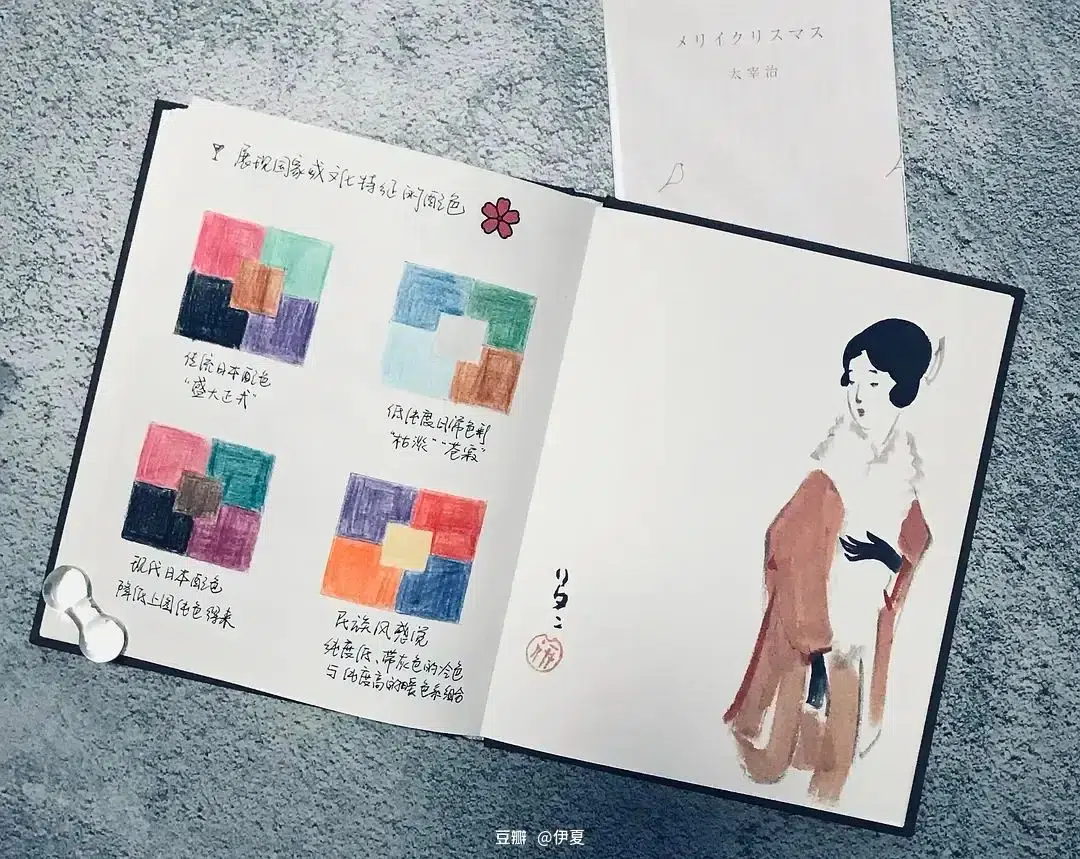 メリイクリスマス
太宰治
展现国家或文化特征的配色
传统日本配色
“盛大正式”
低纯度日常色彩
“枯淡”“苍寂”
现代日本配色
降低上图纯色得来
民族风感觉
纯度低、带灰色的冷色
与纯度高的暖色系组合
豆瓣 @伊夏